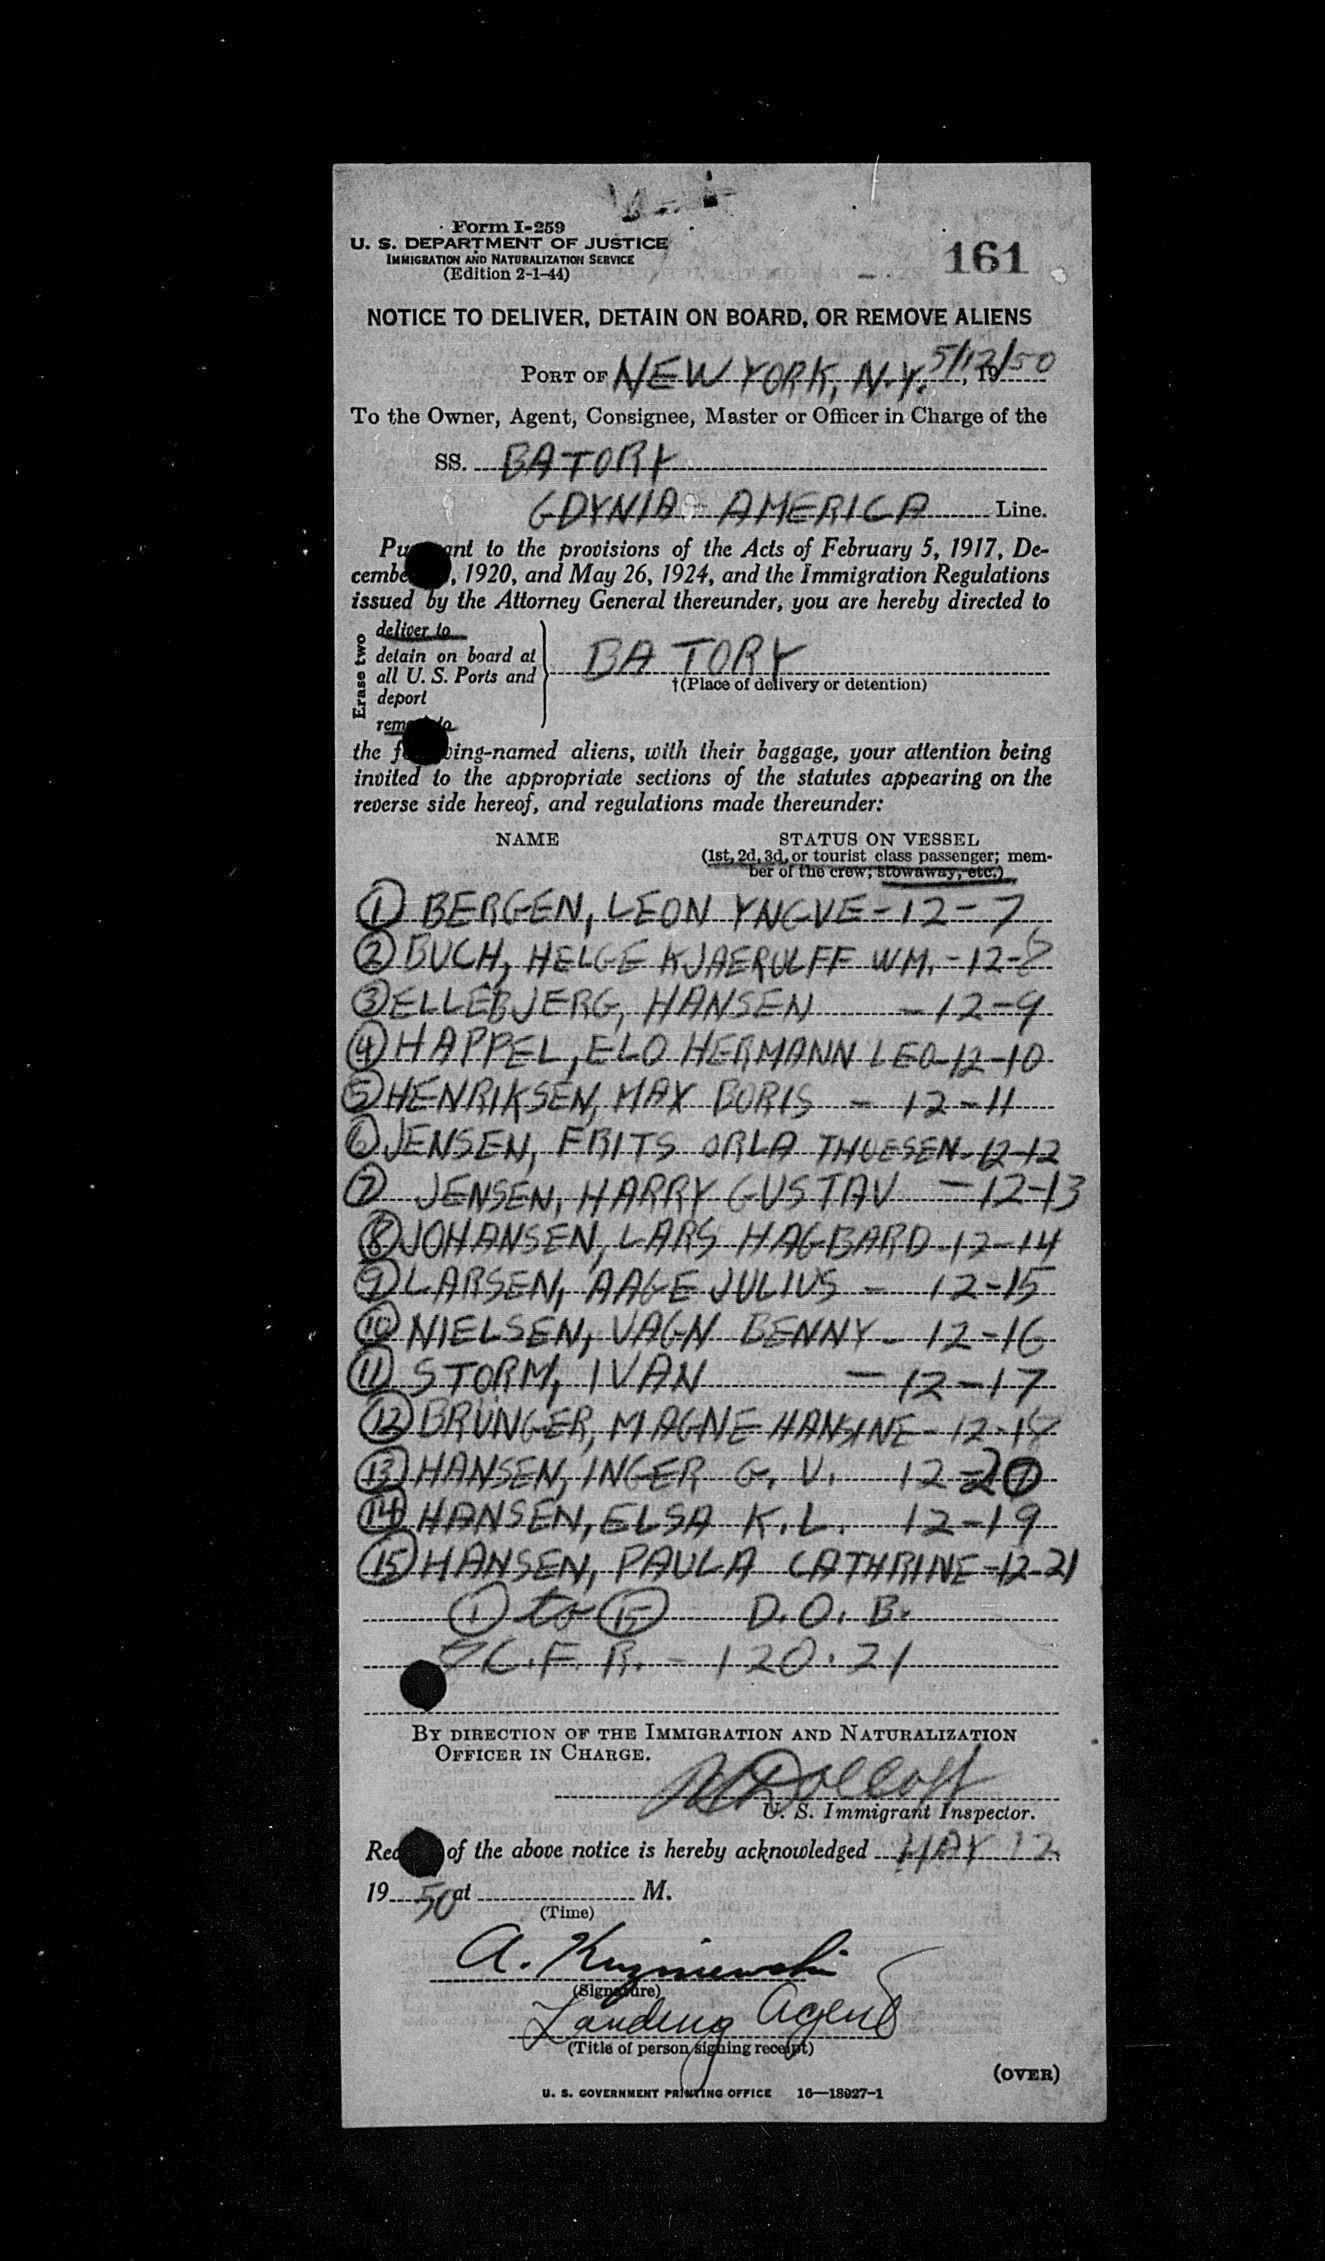 Form I-259
U. S. DEPARTMENT OF JUSTICE
IMMIGRATION AND NATURALIZATION SERVICE
(Edition 2-1-44)
161
NOTICE TO DELIVER, DETAIN ON BOARD, OR REMOVE ALIENS
PORT OF NEW YORK, N.Y. 5/12/50, 19
To the Owner, Agent, Consignee, Master or Officer in Charge of the
SS. BATORY
GDYNIA AMERICA Line.
Pu ant to the provisions of the Acts of February 5, 1917, De-
cembe , 1920, and May 26, 1924, and the Immigration Regulations
issued by the Attorney General thereunder, you are hereby directed to
Erase two
deliver to
detain on board at
all U. S. Ports and
deport
rem to
BATORY
†(Place of delivery or detention)
the f ing-named aliens, with their baggage, your attention being
invited to the appropriate sections of the statutes appearing on the
reverse side hereof, and regulations made thereunder:
NAME STATUS ON VESSEL
(1st, 2d, 3d, or tourist class passenger; mem-
ber of the crew; stowaway, etc.)
1 BERGEN, LEON YNGVE - 12 - 7
2 BUCH, HELGE KJAERULFF WM. - 12-8
3 ELLEBJERG, HANSEN - 12-9
4 HAPPEL, ELO HERMANN LEO-12-10
5 HENRIKSEN, MAX BORIS - 12-11
6 JENSEN, FRITS ORLA THUESEN-12-12
7 JENSEN, HARRY GUSTAV - 12-13
8 JOHANSEN, LARS HAGBARD-12-14
9 LARSEN, AAGE JULIUS - 12-15
10 NIELSEN, VAGN BENNY - 12-16
11 STORM, IVAN - 12-17
12 BRÜNGER, MAGNE HANSINE - 12-18
13 HANSEN, INGER G. V. 12-20
14 HANSEN, ELSA K.L. 12-19
15 HANSEN, PAULA CATHRINE-12-21
1 to 15 D.O.B.
C.F.R. - 120.21
BY DIRECTION OF THE IMMIGRATION AND NATURALIZATION
OFFICER IN CHARGE.
U. S. Immigrant Inspector.
Rec of the above notice is hereby acknowledged MAY 12,
19 50 at M.
(Time)
A. Kuzniewski
(Signature)
Landing Agent
(Title of person signing receipt)
(OVER)
U. S. GOVERNMENT PRINTING OFFICE 16—18927-1